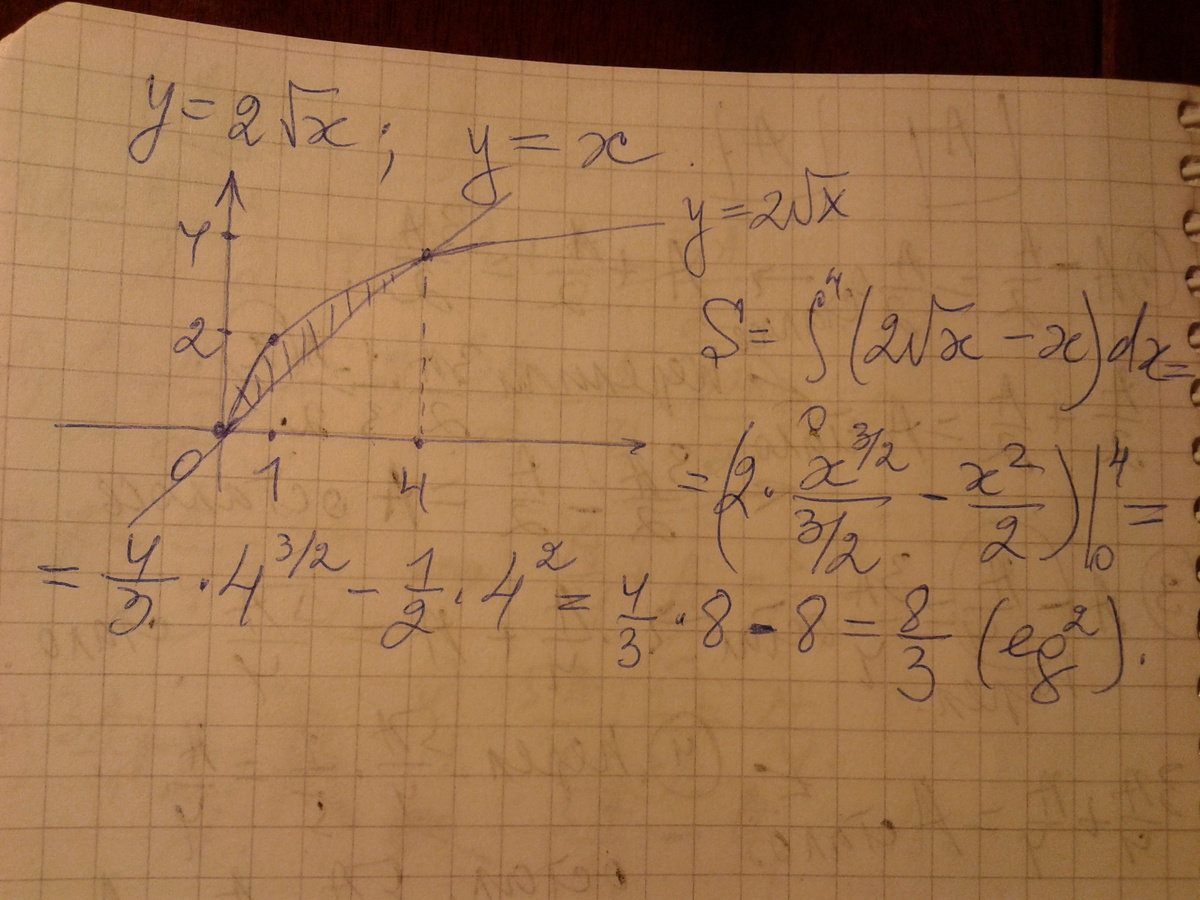 y = 2√x ; y = x .
y = 2√x
4
2
0 1 4
S = ∫₀⁴ (2√x − x) dx =
= (2 · x^(3/2) / (3/2) − x²/2) |₀⁴ =
= 4/3 · 4^(3/2) − 1/2 · 4² = 4/3 · 8 − 8 = 8/3 (ед²).